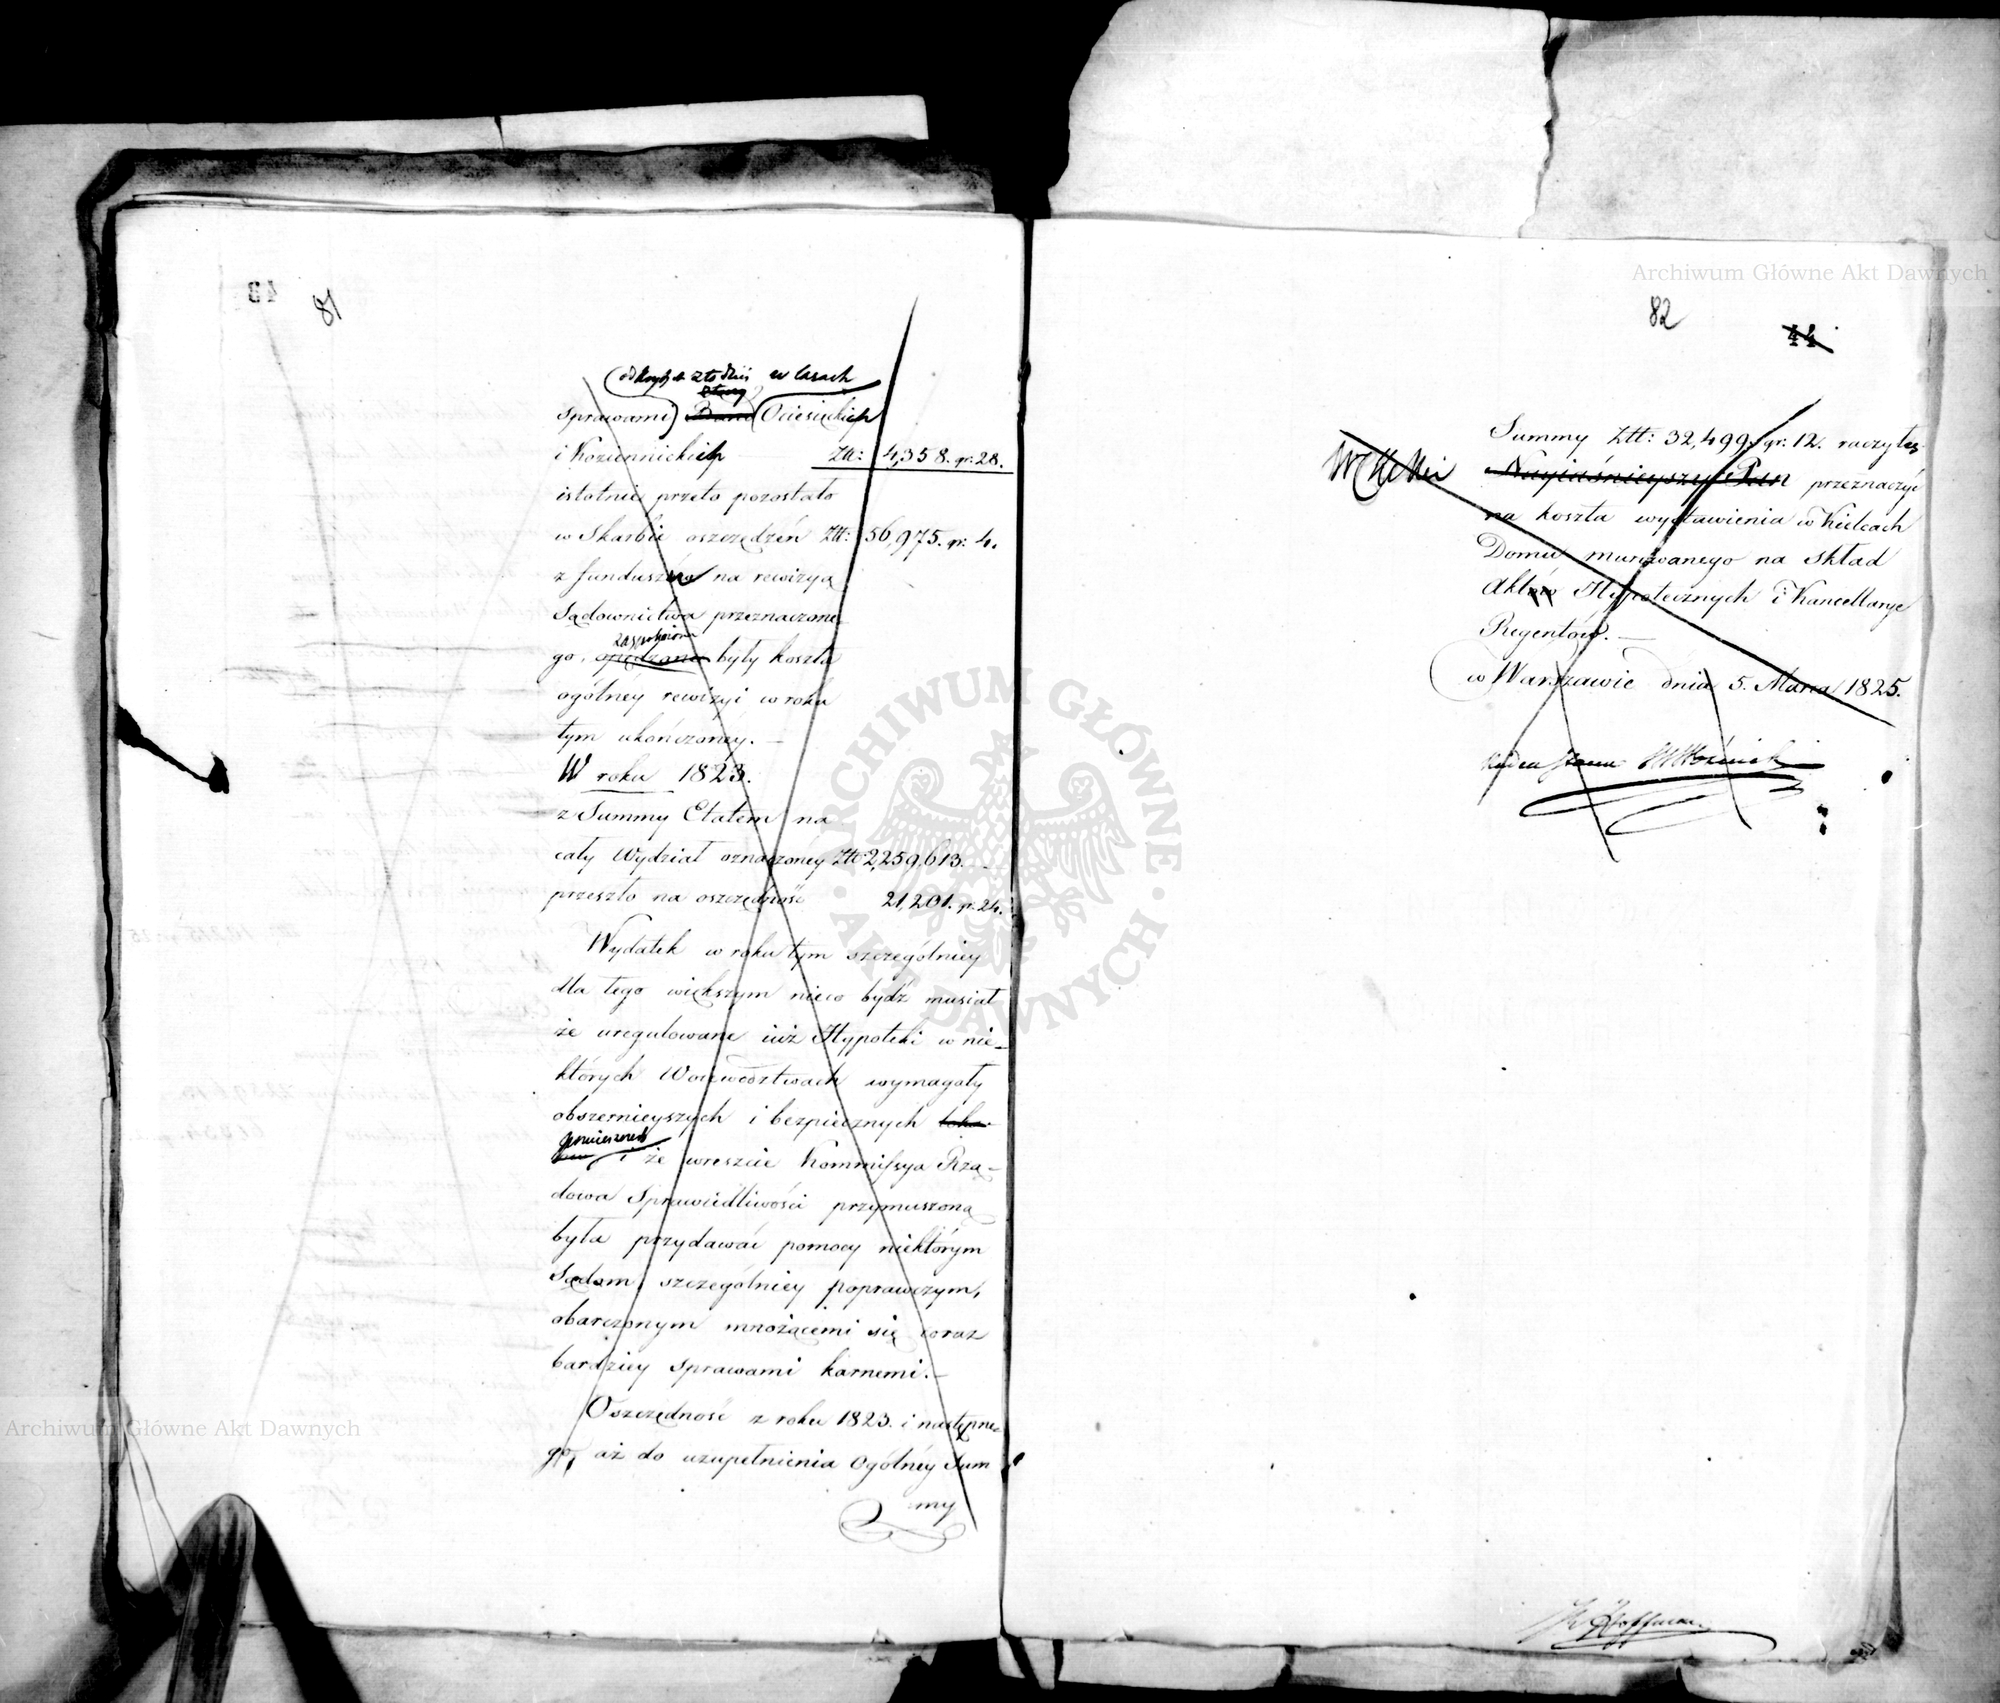 81
odkryta złodziei w lasach
Sprawami Band Ociesięckich
i Koziennickich Złt: 4,358. gr: 28.
istotnie przeto pozostało
w Skarbie oszczędzeń Złt: 56,975. gr: 4.
z funduszów na rewizyą
Sądownictwa przeznaczone-
zaspokoione
go, opędzone były koszta
ogólney rewizyi w roku
tym ukończoney. —
W roku 1823.
z Summy Etatem na
cały Wydział oznaczoney Złt 2,259,613. —
przeszło na oszczędność 21,201. gr. 24.
Wydatek w roku tym szczególniey
dla tego większym nieco bydź musiał
że uregulowane iuż Hypoteki w nie-
których Woiewództwach wymagały
obszernieyszych i bezpiecznych loka-
pomieszczeń
i że wreszcie Kommissya Rzą-
dowa Sprawiedliwości przymuszoną
była przydawać pomocy niektórym
Sądom, szczególniey poprawczym,
obarczonym mnożącemi się coraz
bardziey Sprawami karnemi. —
Oszczędność z roku 1823. i następne-
go, aż do uzupełnienia Ogólney Sum
my
82
44
Summy Złt: 32,499. gr: 12. raczyłeś
W. C. K. Mci Nayiaśnieyszy Pan przeznaczyć
na koszta wystawienia w Kielcach
Domu murowanego na skład
Aktów Hypotecznych i Kancellarye
Regentów. —
w Warszawie dnia 5. Marca 1825.
Radca Stanu Woźnicki
Hoffman
Archiwum Główne Akt Dawnych
Archiwum Główne Akt Dawnych
ARCHIWUM GŁÓWNE · AKT DAWNYCH ·